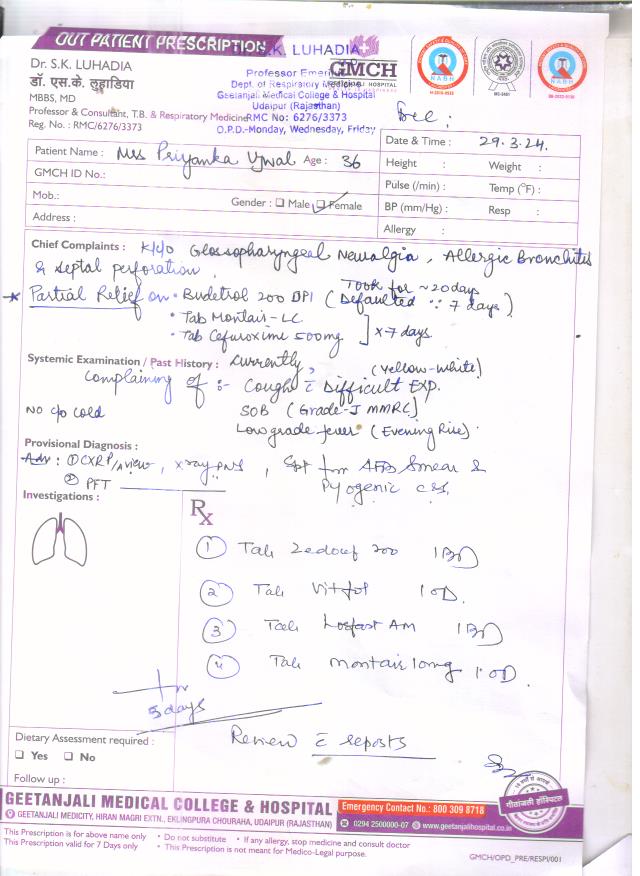 OUT PATIENT PRESCRIPTION
S.K. LUHADIA
Dr. S.K. LUHADIA
डॉ. एस.के. लुहाडिया
MBBS, MD
Professor & Consultant, T.B. & Respiratory Medicine
Reg. No. : RMC/6276/3373
Professor Emeri
Dept. of Respiratory Medicine
Geetanjali Medical College & Hospital
Udaipur (Rajasthan)
RMC No: 6276/3373
O.P.D.-Monday, Wednesday, Friday
GMCH
NABH
NABH
free :
Patient Name : Mrs Priyanka Ujwal Age : 36
Date & Time : 29.3.24.
GMCH ID No.:
Height : Weight :
Mob.: Gender : Male Female
Pulse (/min) : Temp (°F) :
Address :
BP (mm/Hg) : Resp :
Allergy :
Chief Complaints : K/C/O Glossopharyngeal Neuralgia, Allergic Bronchitis
& septal perforation.
Took for ~20days
* Partial Relief on • Budetrol 200 DPI (Defaulted ∵ 7 days)
• Tab Montair-LC
• Tab Cefuroxime 500mg ] x 7 days
Systemic Examination / Past History : Currently, (Yellow-white)
Complaining of :- Cough c̄ Difficult EXP.
NO c/o cold SOB (Grade-I MMRC)
Low grade fever (Evening Rise)
Provisional Diagnosis :
Adv : ① CXR P/A view, x ray PNS, Spt for AFB Smear &
② PFT Pyogenic c/s.
Investigations :
Rx
① Tab Zedouf 200 1 BD
② Tab Vitfol 1 OD.
③ Tab Losfast AM 1 BD
④ Tab montair long 1 OD.
5 days
Dietary Assessment required :
Yes No
Review c̄ reports
Follow up :
गीतांजली हॉस्पिटल
GEETANJALI MEDICAL COLLEGE & HOSPITAL
Emergency Contact No.: 800 309 8718
GEETANJALI MEDICITY, HIRAN MAGRI EXTN., EKLINGPURA CHOURAHA, UDAIPUR (RAJASTHAN)
0294 2500000-07 www.geetanjalihospital.co.in
This Prescription is for above name only • Do not substitute • If any allergy, stop medicine and consult doctor
This Prescription valid for 7 Days only • This Prescription is not meant for Medico-Legal purpose.
GMCH/OPD_PRE/RESPI/001